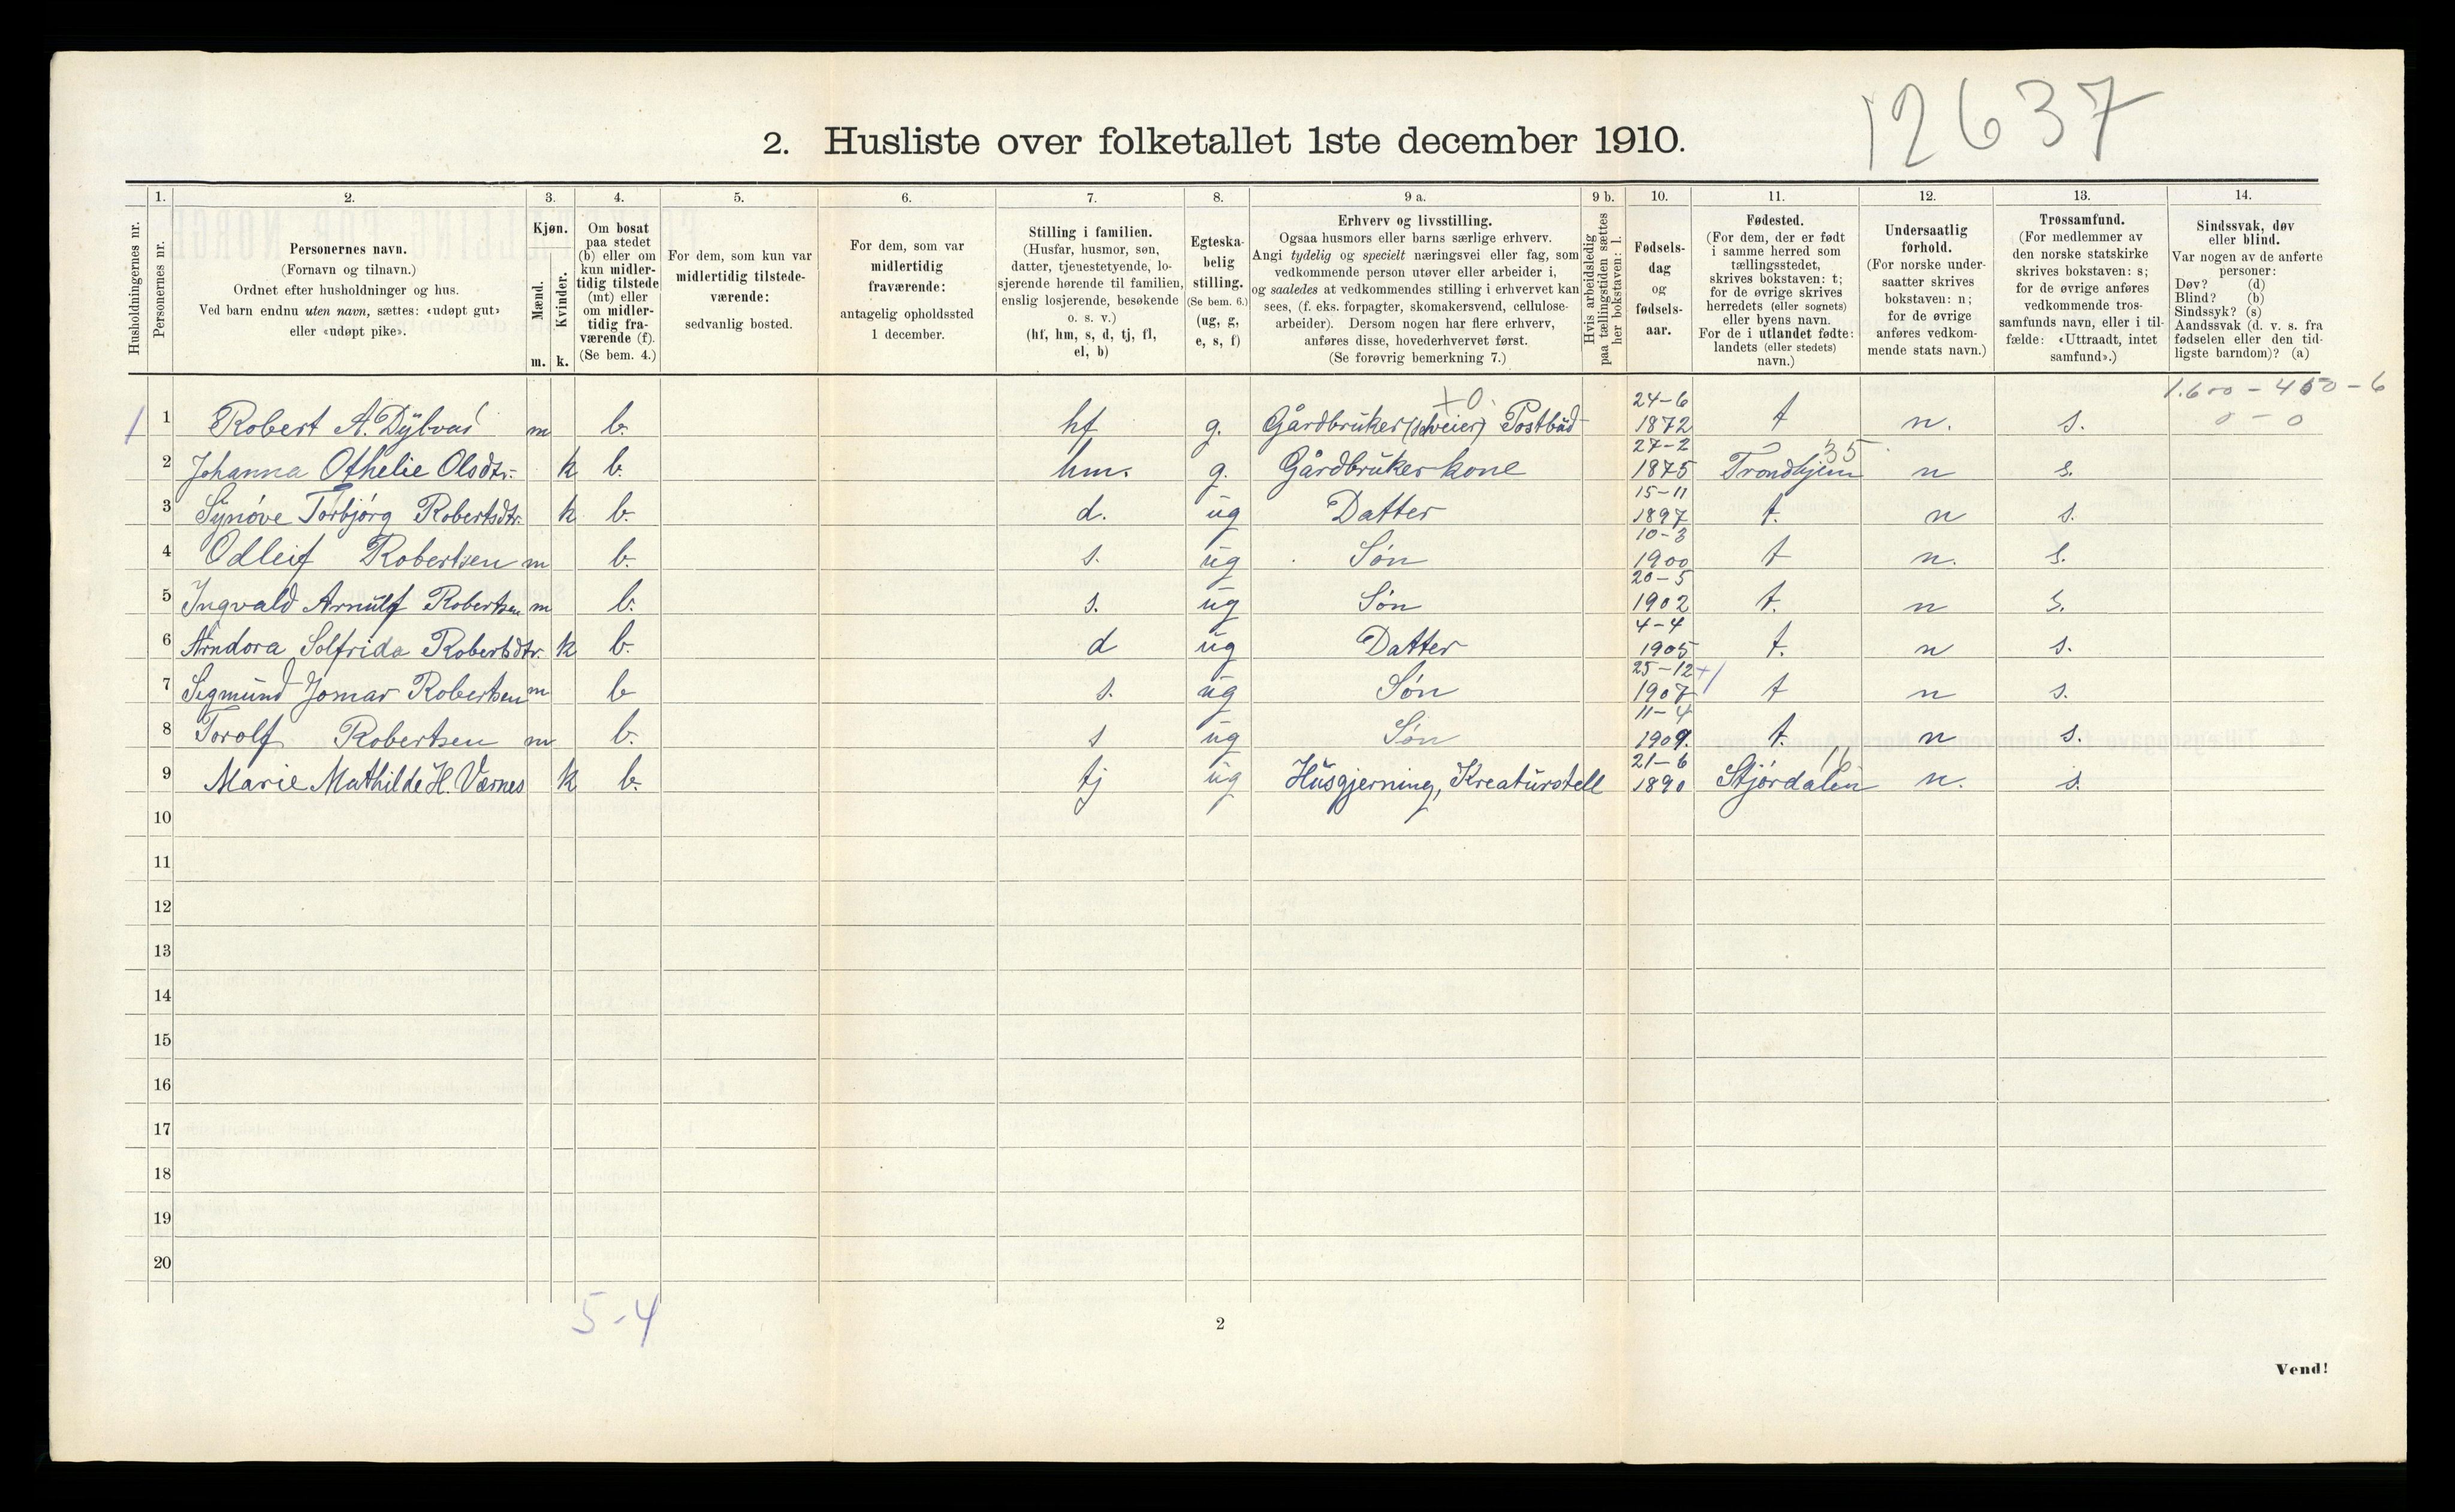 12637
2. Husliste over folketallet 1ste december 1910.
Husholdningernes nr.
1.
Personernes nr.
2.
Personernes navn.
(Fornavn og tilnavn.)
Ordnet efter husholdninger og hus.
Ved barn endnu uten navn, sættes: «udøpt gut»
eller «udøpt pike».
3.
Kjøn.
Mænd.
Kvinder.
m. k.
4.
Om bosat
paa stedet
(b) eller om
kun midler-
tidig tilstede
(mt) eller
om midler-
tidig fra-
værende (f).
(Se bem. 4.)
5.
For dem, som kun var
midlertidig tilstede-
værende:
sedvanlig bosted.
6.
For dem, som var
midlertidig
fraværende:
antagelig opholdssted
1 december.
7.
Stilling i familien.
(Husfar, husmor, søn,
datter, tjenestetyende, lo-
sjerende hørende til familien,
enslig losjerende, besøkende
o. s. v.)
(hf, hm, s, d, tj, fl,
el, b)
8.
Egteska-
belig
stilling.
(Se bem. 6.)
(ug, g,
e, s, f)
9 a.
Erhverv og livsstilling.
Ogsaa husmors eller barns særlige erhverv.
Angi tydelig og specielt næringsvei eller fag, som
vedkommende person utøver eller arbeider i,
og saaledes at vedkommendes stilling i erhvervet kan
sees, (f. eks. forpagter, skomakersvend, cellulose-
arbeider). Dersom nogen har flere erhverv,
anføres disse, hovederhvervet først.
(Se forøvrig bemerkning 7.)
9 b.
Hvis arbeidsledig
paa tællingstiden sættes
her bokstaven: l.
10.
Fødsels-
dag
og
fødsels-
aar.
11.
Fødested.
(For dem, der er født
i samme herred som
tællingsstedet,
skrives bokstaven: t;
for de øvrige skrives
herredets (eller sognets)
eller byens navn.
For de i utlandet fødte:
landets (eller stedets)
navn.)
12.
Undersaatlig
forhold.
(For norske under-
saatter skrives
bokstaven: n;
for de øvrige
anføres vedkom-
mende stats navn.)
13.
Trossamfund.
(For medlemmer av
den norske statskirke
skrives bokstaven: s;
for de øvrige anføres
vedkommende tros-
samfunds navn, eller i til-
fælde: «Uttraadt, intet
samfund».)
14.
Sindssvak, døv
eller blind.
Var nogen av de anførte
personer:
Døv? (d)
Blind? (b)
Sindssyk? (s)
Aandssvak (d. v. s. fra
fødselen eller den tid-
ligste barndom)? (a)
1 1 Robert A. Dÿbvad m b. hf g. Gårdbrüker (selveier) Postbüd 24-6 1872 t n. s.
2 Johanna Othelie Olsdtr. k b. hm. g. Gårdbrükerkone 27-2 1875 Trondhjem 35 n s.
3 Synöve Torbjörg Robertsdtr. k b. d. üg Datter 15-11 1897 t. n s.
4 Odleif Robertsen m b. s. üg Søn 10-3 1900 t n. s.
5 Ingvald Arnülf Robertsen m b. s. üg Søn 20-5 1902 t. n s.
6 Arndora Solfrida Robertsdtr. k b. d üg Datter 4-4 1905 t. n s.
7 Sigmünd Jomar Robertsen m b s. üg Søn 25-12 1907 t n s.
8 Torolf Robertsen m b. s üg Søn 11-4 1909. t. n s.
9 Marie Mathilde H. Værnes k b. tj üg Hüsgjerning, Kreatürstell 21-6 1890 Stjørdalen 16 n. s.
10
11
12
13
14
15
16
17
18
19
20
5-4
2
Vend!